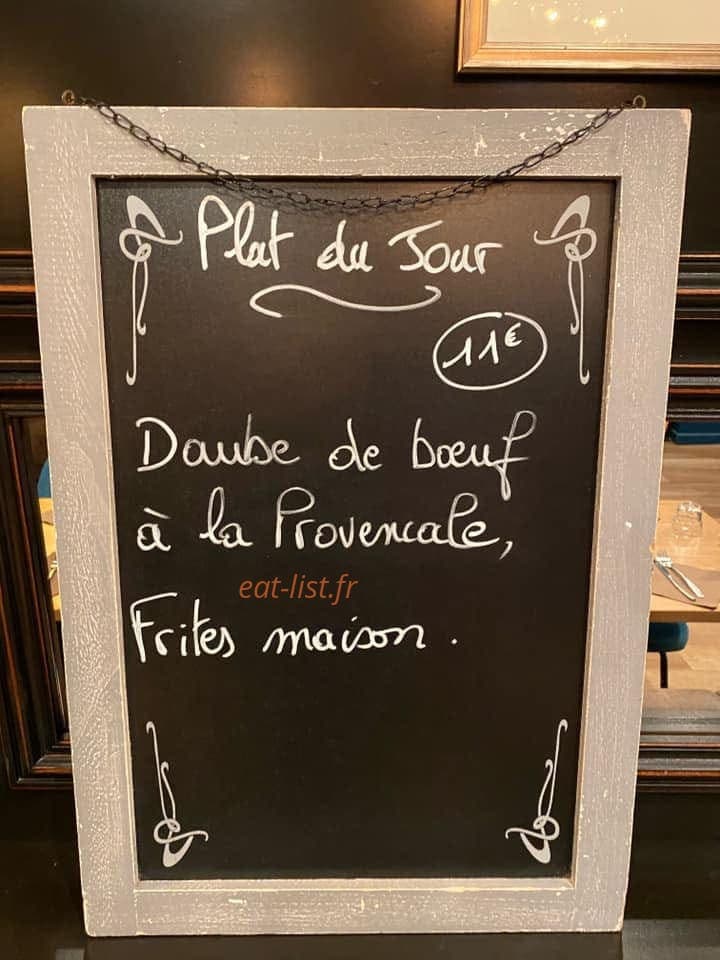 Plat du Jour
11€
Daube de bœuf
à la Provencale,
eat-list.fr
Frites maison.